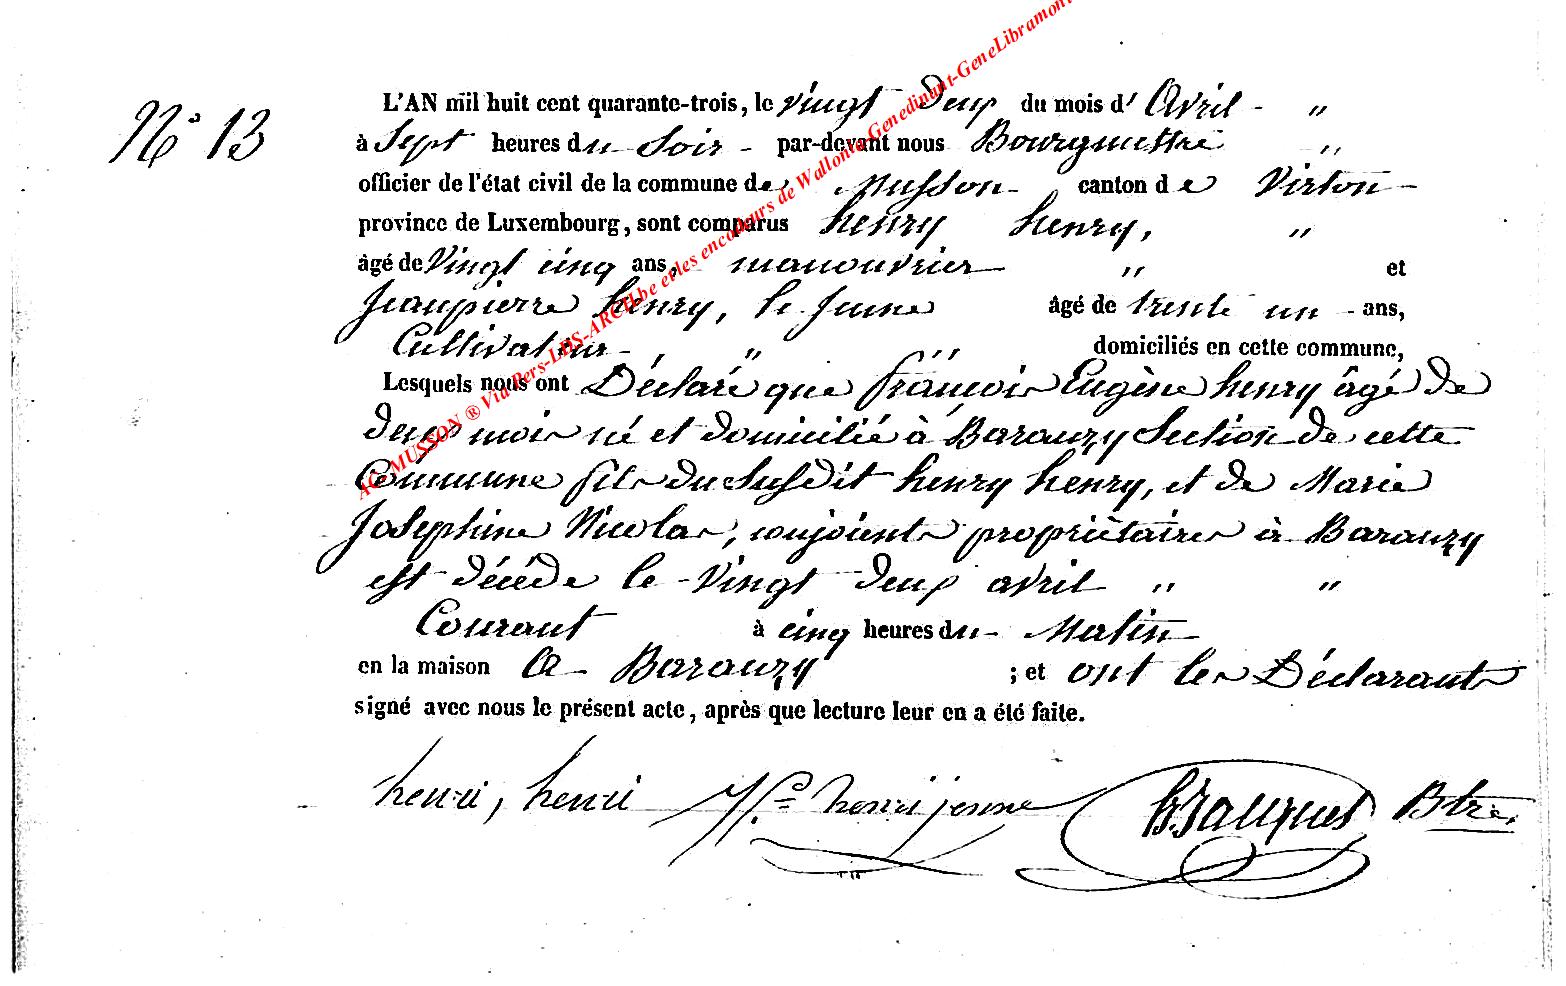 N° 13
L'AN mil huit cent quarante-trois, le vingt deux du mois d'Avril - "
à Sept heures du Soir - par-devant nous Bourgmestre "
officier de l'état civil de la commune de Musson - canton de Virton -
province de Luxembourg, sont comparus henry henry, "
âgé de Vingt cinq ans, manouvrier " et
Jeanpierre henry, le Jeune âgé de trente un - ans,
Cultivateur -, " " domiciliés en cette commune,
Lesquels nous ont Déclaré que françois Eugène henry âgé de
deux mois né et domicilié à Baranzy Section de cette
Commune fils du Susdit henry henry, et de Marie
Josephine Nicolas, conjoints propriètaires à Baranzy
est décédé le - Vingt deux avril " "
Courant à cinq heures du - Matin -
en la maison a - Baranzy ; et ont les Déclarants
signé avec nous le présent acte, après que lecture leur en a été faite.
henri, henri henri jenne Jacques Btre.
AC MUSSON ® Via Pers-LDS-ARCH.be et les encodeurs de Wallonie-Genedinant-GeneLibramont